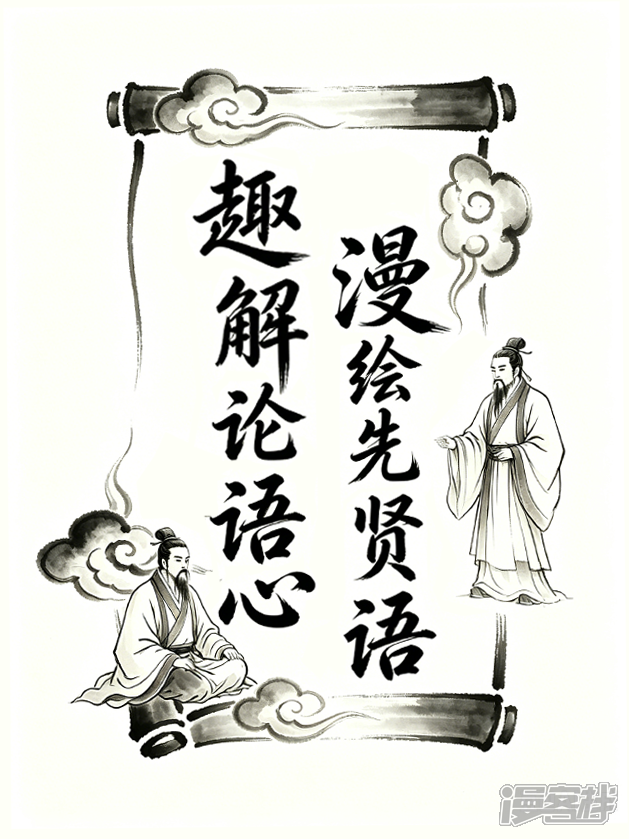 漫绘先贤语
趣解论语心
漫客栈